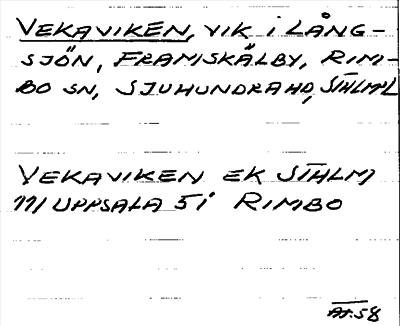 VEKAVIKEN, VIK I LÅNG-
SJÖN, FRAMSKÄLBY, RIM-
BO SN, SJUHUNDRA HD, STHLMSL
VEKAVIKEN EK STHLM
111 UPPSALA 5 i RIMBO
AF. 58